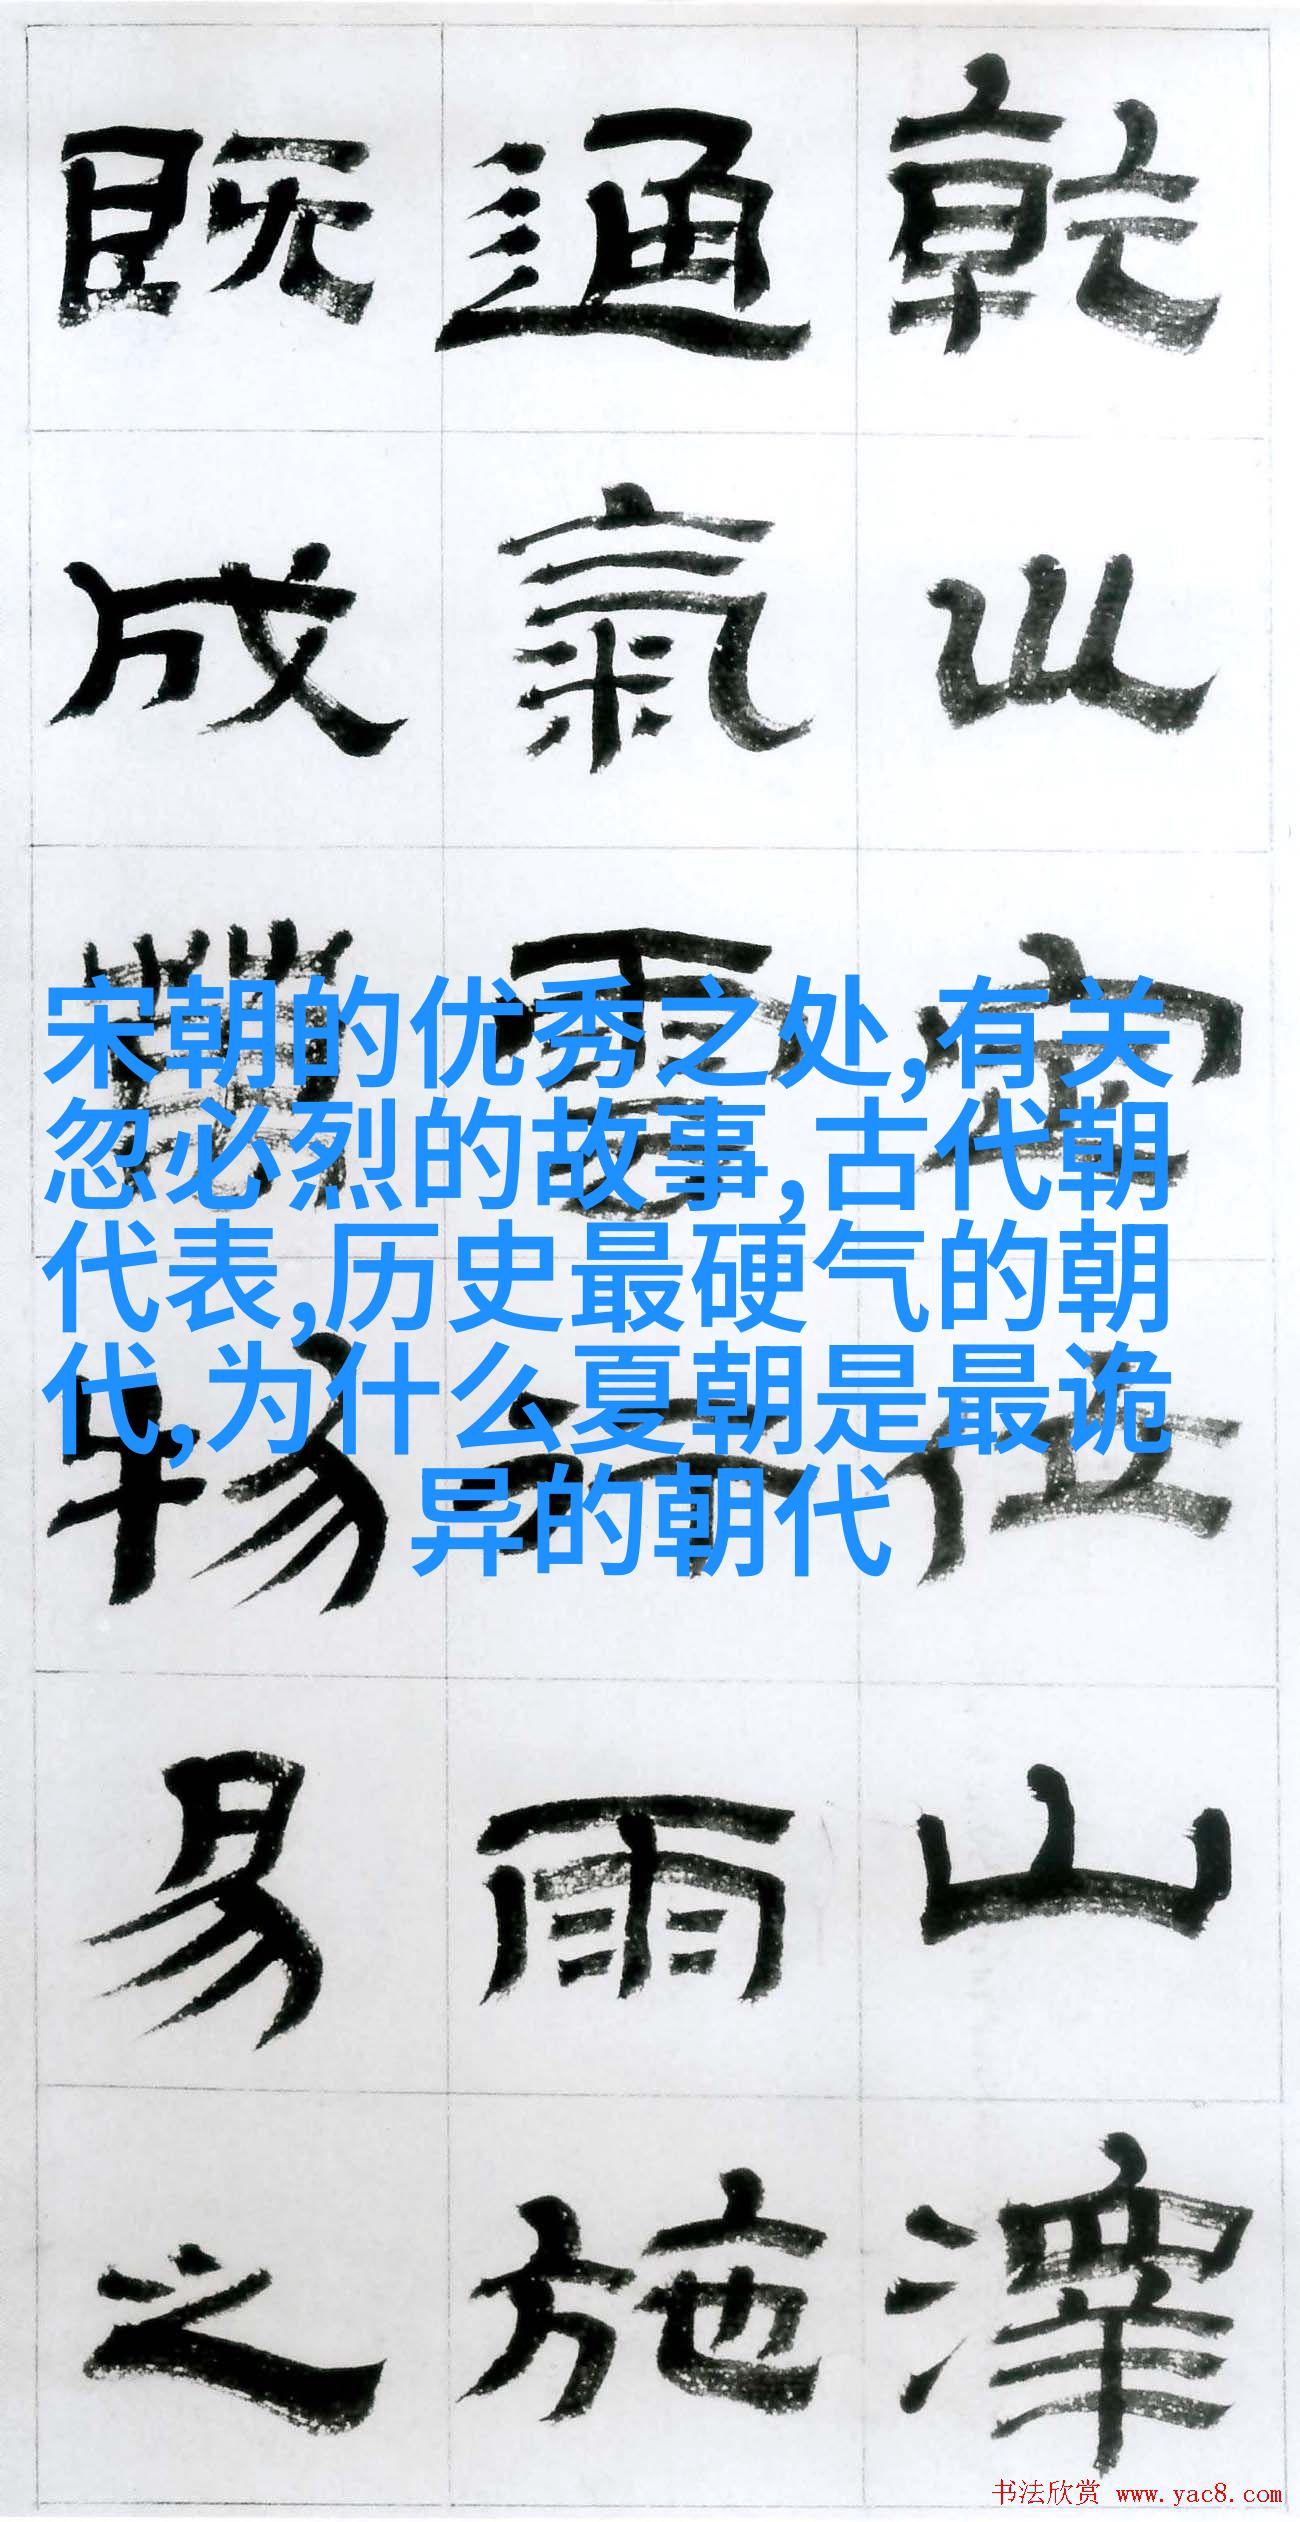 乾定位山澤
通氣雲行雨施
既成物易之
宋朝的优秀之处,有关
忽必烈的故事,古代朝
代表,历史最硬气的朝
代,为什么夏朝是最诡
异的朝代
书法欣赏 www.yac8.com